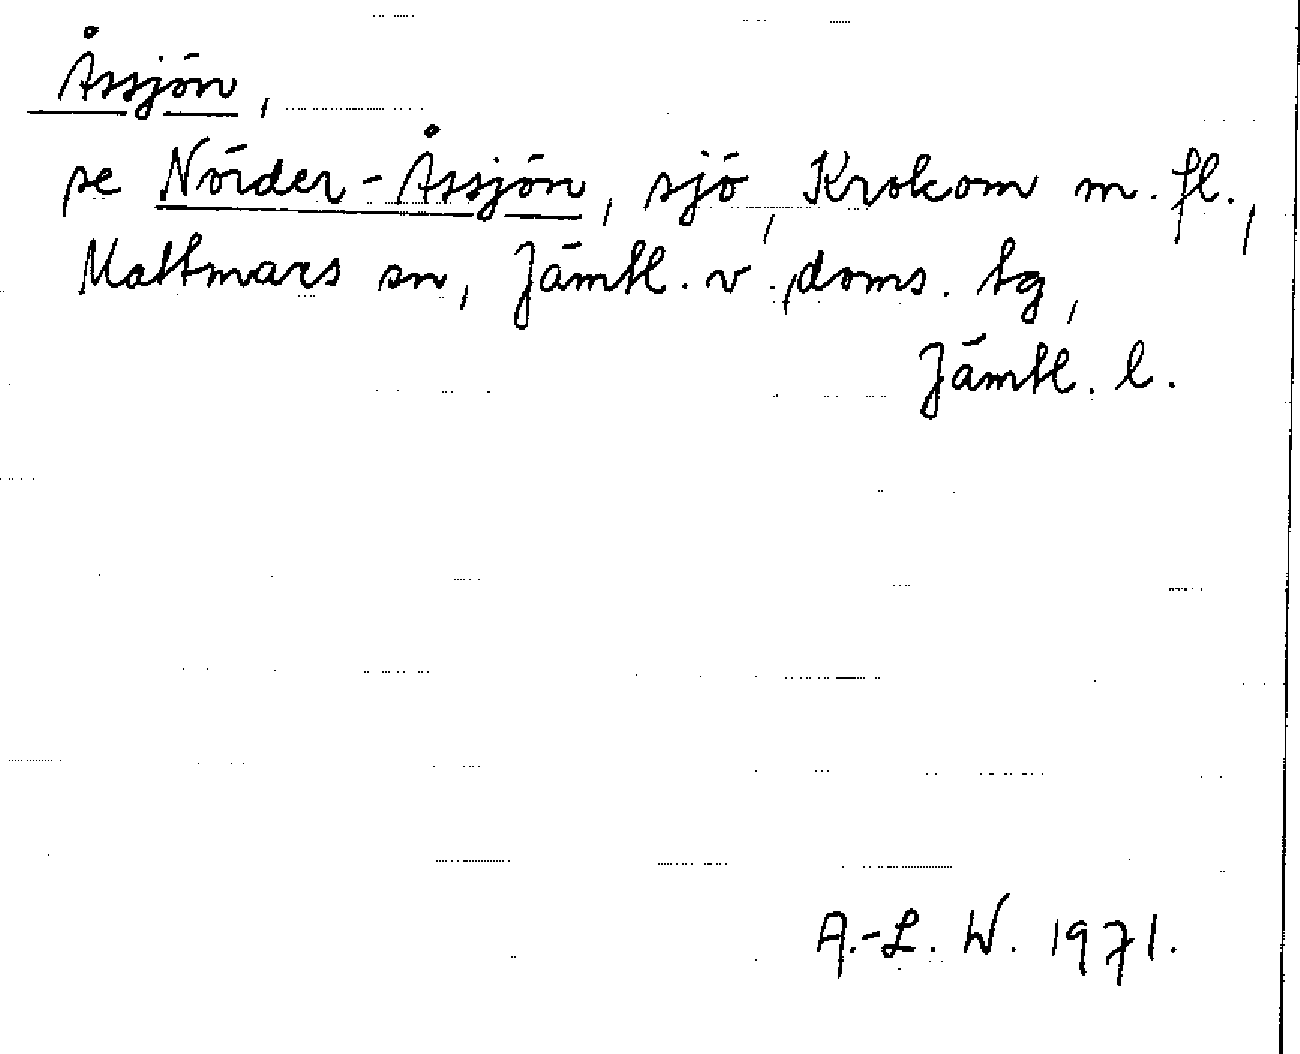 Åssjön,
se Nörder-Åssjön, sjö, Krokom m. fl.,
Mattmars sn, Jämtl. v. doms. tg,
Jämtl. l.
A.-L. W. 1971.